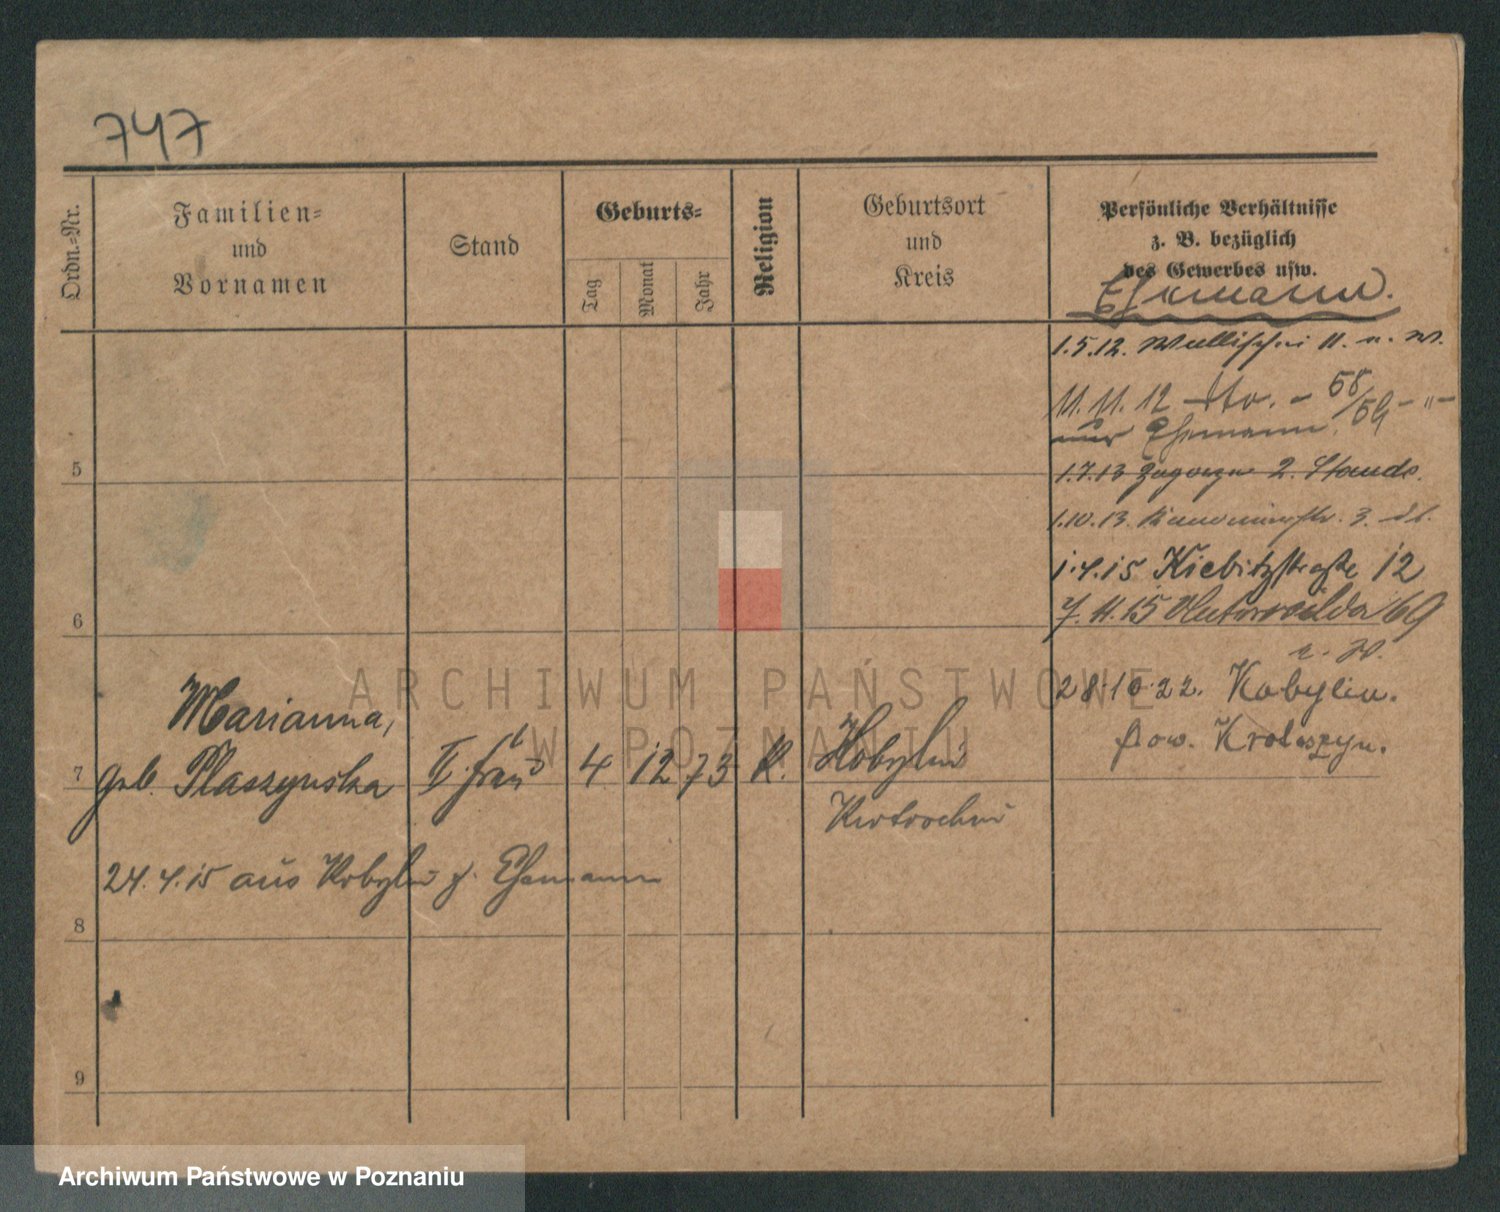 747
Ordn.-Nr.
Familien-
und
Vornamen
Stand
Geburts-
Tag
Monat
Jahr
Religion
Geburtsort
und
Kreis
Persönliche Verhältnisse
z. B. bezüglich
des Gewerbes usw.
Ehemann.
1.5.12. Wallischei 11. n. W.
11.11.12 dto. - 58/59 - " -
nur Ehemann.
5
1.7.13 Zagorze 2. Stando.
1.10.13. 3.
1.4.15 Kiebitzstraße 12
6
7.11.15 Unterwilda 69
28.10.22. Kobylin.
pow. Krotoszyn.
Marianna,
7 geb. Płaszyńska II. frau 4 12 73 K. Kobylin
Krotoschin
24.4.15 aus Kobylin z. Ehemann
8
9
ARCHIWUM PAŃSTWOWE
W POZNANIU
Archiwum Państwowe w Poznaniu